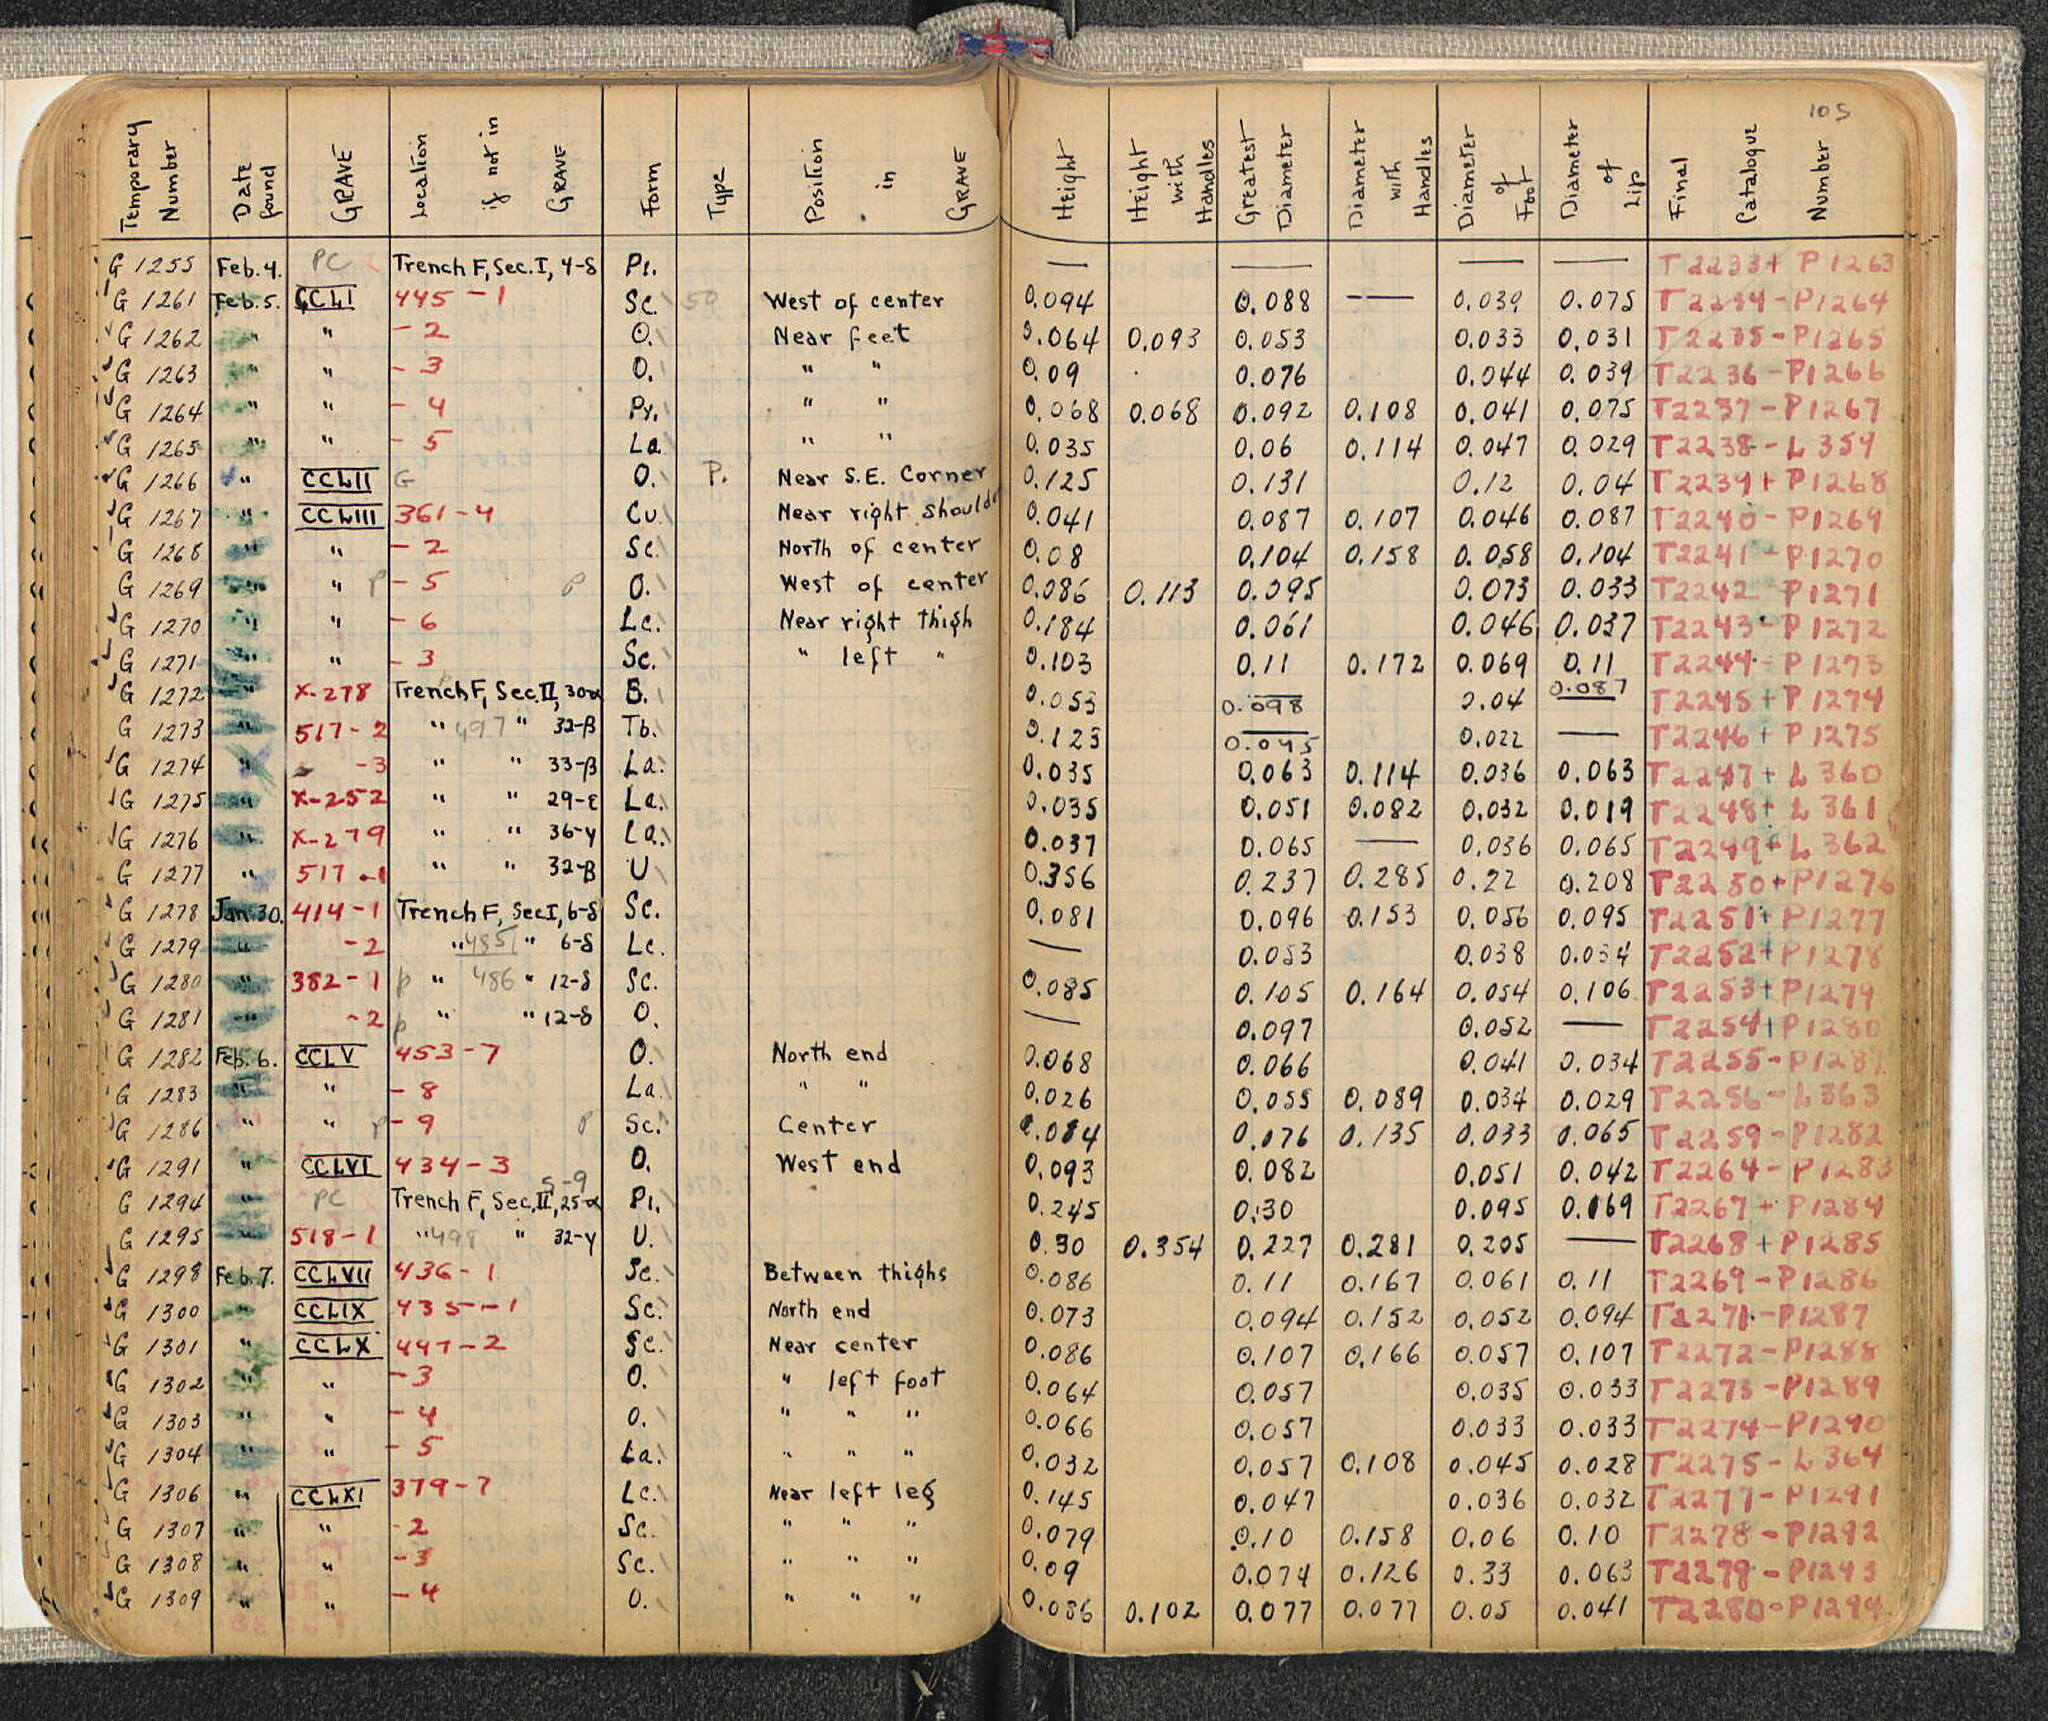 105
Temporary Number | Date found | GRAVE | Location if not in GRAVE | Form | Type | Position in GRAVE | Height | Height with Handles | Greatest Diameter | Diameter with Handles | Diameter of Foot | Diameter of Lip | Final Catalogue Number
G 1255 Feb. 4. PC Trench F, Sec. I, 4-δ Pi. — — — — T2233+ P1263
G 1261 Feb. 5. CCLI 445-1 Sc. 50 West of center 0.094 0.088 — 0.039 0.075 T2234-P1264
G 1262 " " -2 O. Near feet 0.064 0.093 0.053 0.033 0.031 T2235-P1265
G 1263 " " -3 O. " " 0.09 0.076 0.044 0.039 T2236-P1266
G 1264 " " -4 Py. " " 0.068 0.068 0.092 0.108 0.041 0.075 T2237-P1267
G 1265 " " -5 La " " 0.035 0.06 0.114 0.047 0.029 T2238-L359
G 1266 " CCLII G O. P. Near S.E. Corner 0.125 0.131 0.12 0.04 T2239+ P1268
G 1267 " CCLIII 361-4 Cu. Near right should 0.041 0.087 0.107 0.046 0.087 T2240-P1269
G 1268 " " -2 Sc. North of center 0.08 0.104 0.158 0.058 0.104 T2241-P1270
G 1269 " " P -5 P O. West of center 0.086 0.113 0.095 0.073 0.033 T2242-P1271
G 1270 " " -6 Lc. Near right thigh 0.184 0.061 0.046 0.037 T2243-P1272
G 1271 " " -3 Sc. " left " 0.103 0.11 0.172 0.069 0.11 T2244-P1273
G 1272 " X-278 Trench F, Sec. II, 30α B. 0.053 0.098 0.04 0.087 T2245+P1274
G 1273 517-2 " 497 " 32-β Tb. 0.123 0.045 0.022 — T2246+P1275
G 1274 " -3 " " 33-β La. 0.035 0.063 0.114 0.036 0.063 T2247+ L360
G 1275 " X-252 " " 29-ε La. 0.035 0.051 0.082 0.032 0.019 T2248+ L361
G 1276 " X-279 " " 36-γ La. 0.037 0.065 — 0.036 0.065 T2249+L362
G 1277 " 517-1 " " 32-β U 0.356 0.237 0.285 0.22 0.208 T2250+P1276
G 1278 Jan. 30. 414-1 Trench F, Sec I, 6-δ Sc. 0.081 0.096 0.153 0.056 0.095 T2251+P1277
G 1279 " -2 " 485 " 6-δ Lc. — 0.053 0.038 0.034 T2252+P1278
G 1280 " 382-1 p " 486 " 12-δ Sc. 0.085 0.105 0.164 0.054 0.106 T2253+P1279
G 1281 " -2 p " " 12-δ O. — 0.097 0.052 — T2254+P1280
G 1282 Feb. 6. CCLV 453-7 O. North end 0.068 0.066 0.041 0.034 T2255-P1281
G 1283 " " -8 La. " " 0.026 0.055 0.089 0.034 0.029 T2256-L363
G 1286 " " P -9 P Sc. Center 0.084 0.076 0.135 0.033 0.065 T2259-P1282
G 1291 " CCLVI 434-3 O. West end 0.093 0.082 0.051 0.042 T2264-P1283
G 1294 " PC Trench F, Sec. II, 25-α 5-9 Pi. 0.245 0.30 0.095 0.169 T2267+P1284
G 1295 " 518-1 " 498 " 32-γ U. 0.30 0.354 0.227 0.281 0.205 — T2268+P1285
G 1298 Feb. 7. CCLVII 436-1 Sc. Between thighs 0.086 0.11 0.167 0.061 0.11 T2269-P1286
G 1300 " CCLIX 435-1 Sc. North end 0.073 0.094 0.152 0.052 0.094 T2271-P1287
G 1301 " CCLX 447-2 Sc. Near center 0.086 0.107 0.166 0.057 0.107 T2272-P1288
G 1302 " " -3 O. " left foot 0.064 0.057 0.035 0.033 T2273-P1289
G 1303 " " -4 O. " " " 0.066 0.057 0.033 0.033 T2274-P1290
G 1304 " " -5 La. " " " 0.032 0.057 0.108 0.045 0.028 T2275-L364
G 1306 " CCLXI 379-7 Lc. Near left leg 0.145 0.047 0.036 0.032 T2277-P1291
G 1307 " " -2 Sc. " " " 0.079 0.10 0.158 0.06 0.10 T2278-P1292
G 1308 " " -3 Sc. " " " 0.09 0.074 0.126 0.33 0.063 T2279-P1293
G 1309 " " -4 O. " " " 0.086 0.102 0.077 0.077 0.05 0.041 T2280-P1294